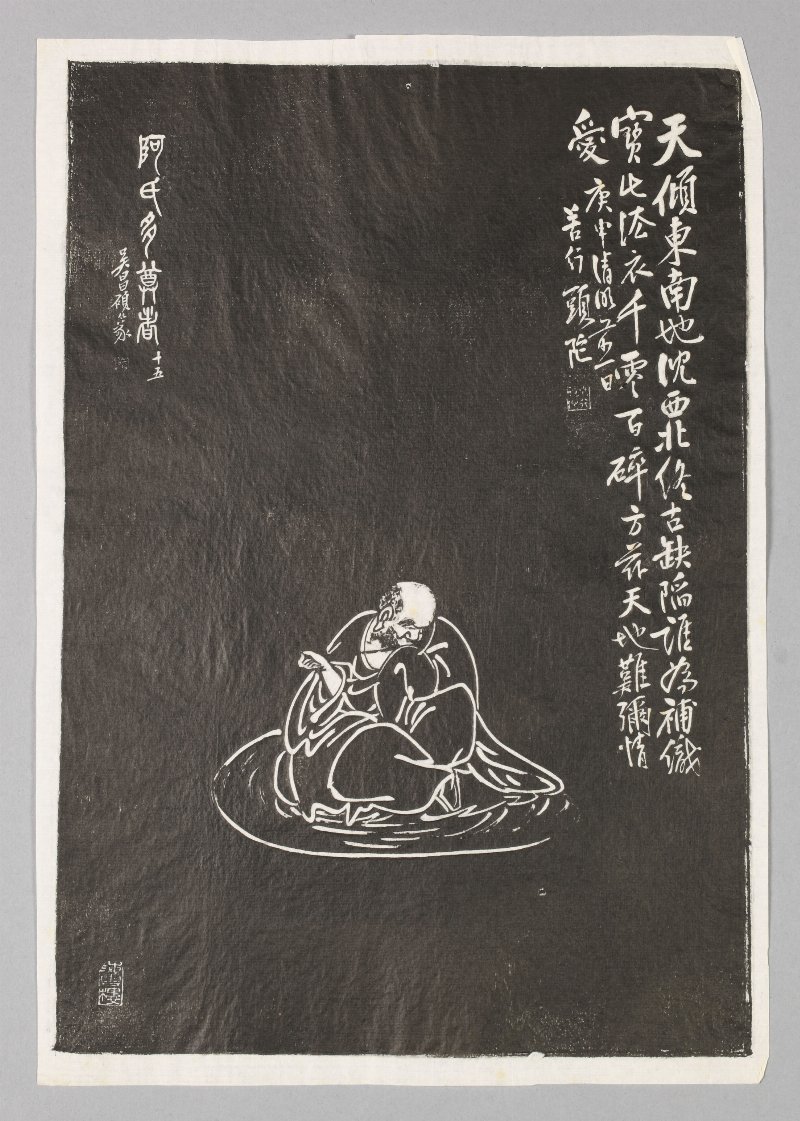 天傾東南地沈西北終古缺陷誰為補織
寶此法衣千零百碎方茲天地難彌情
愛
庚申清明前一日
善行頭陀
阿氏多尊者
十五
吳昌碩篆